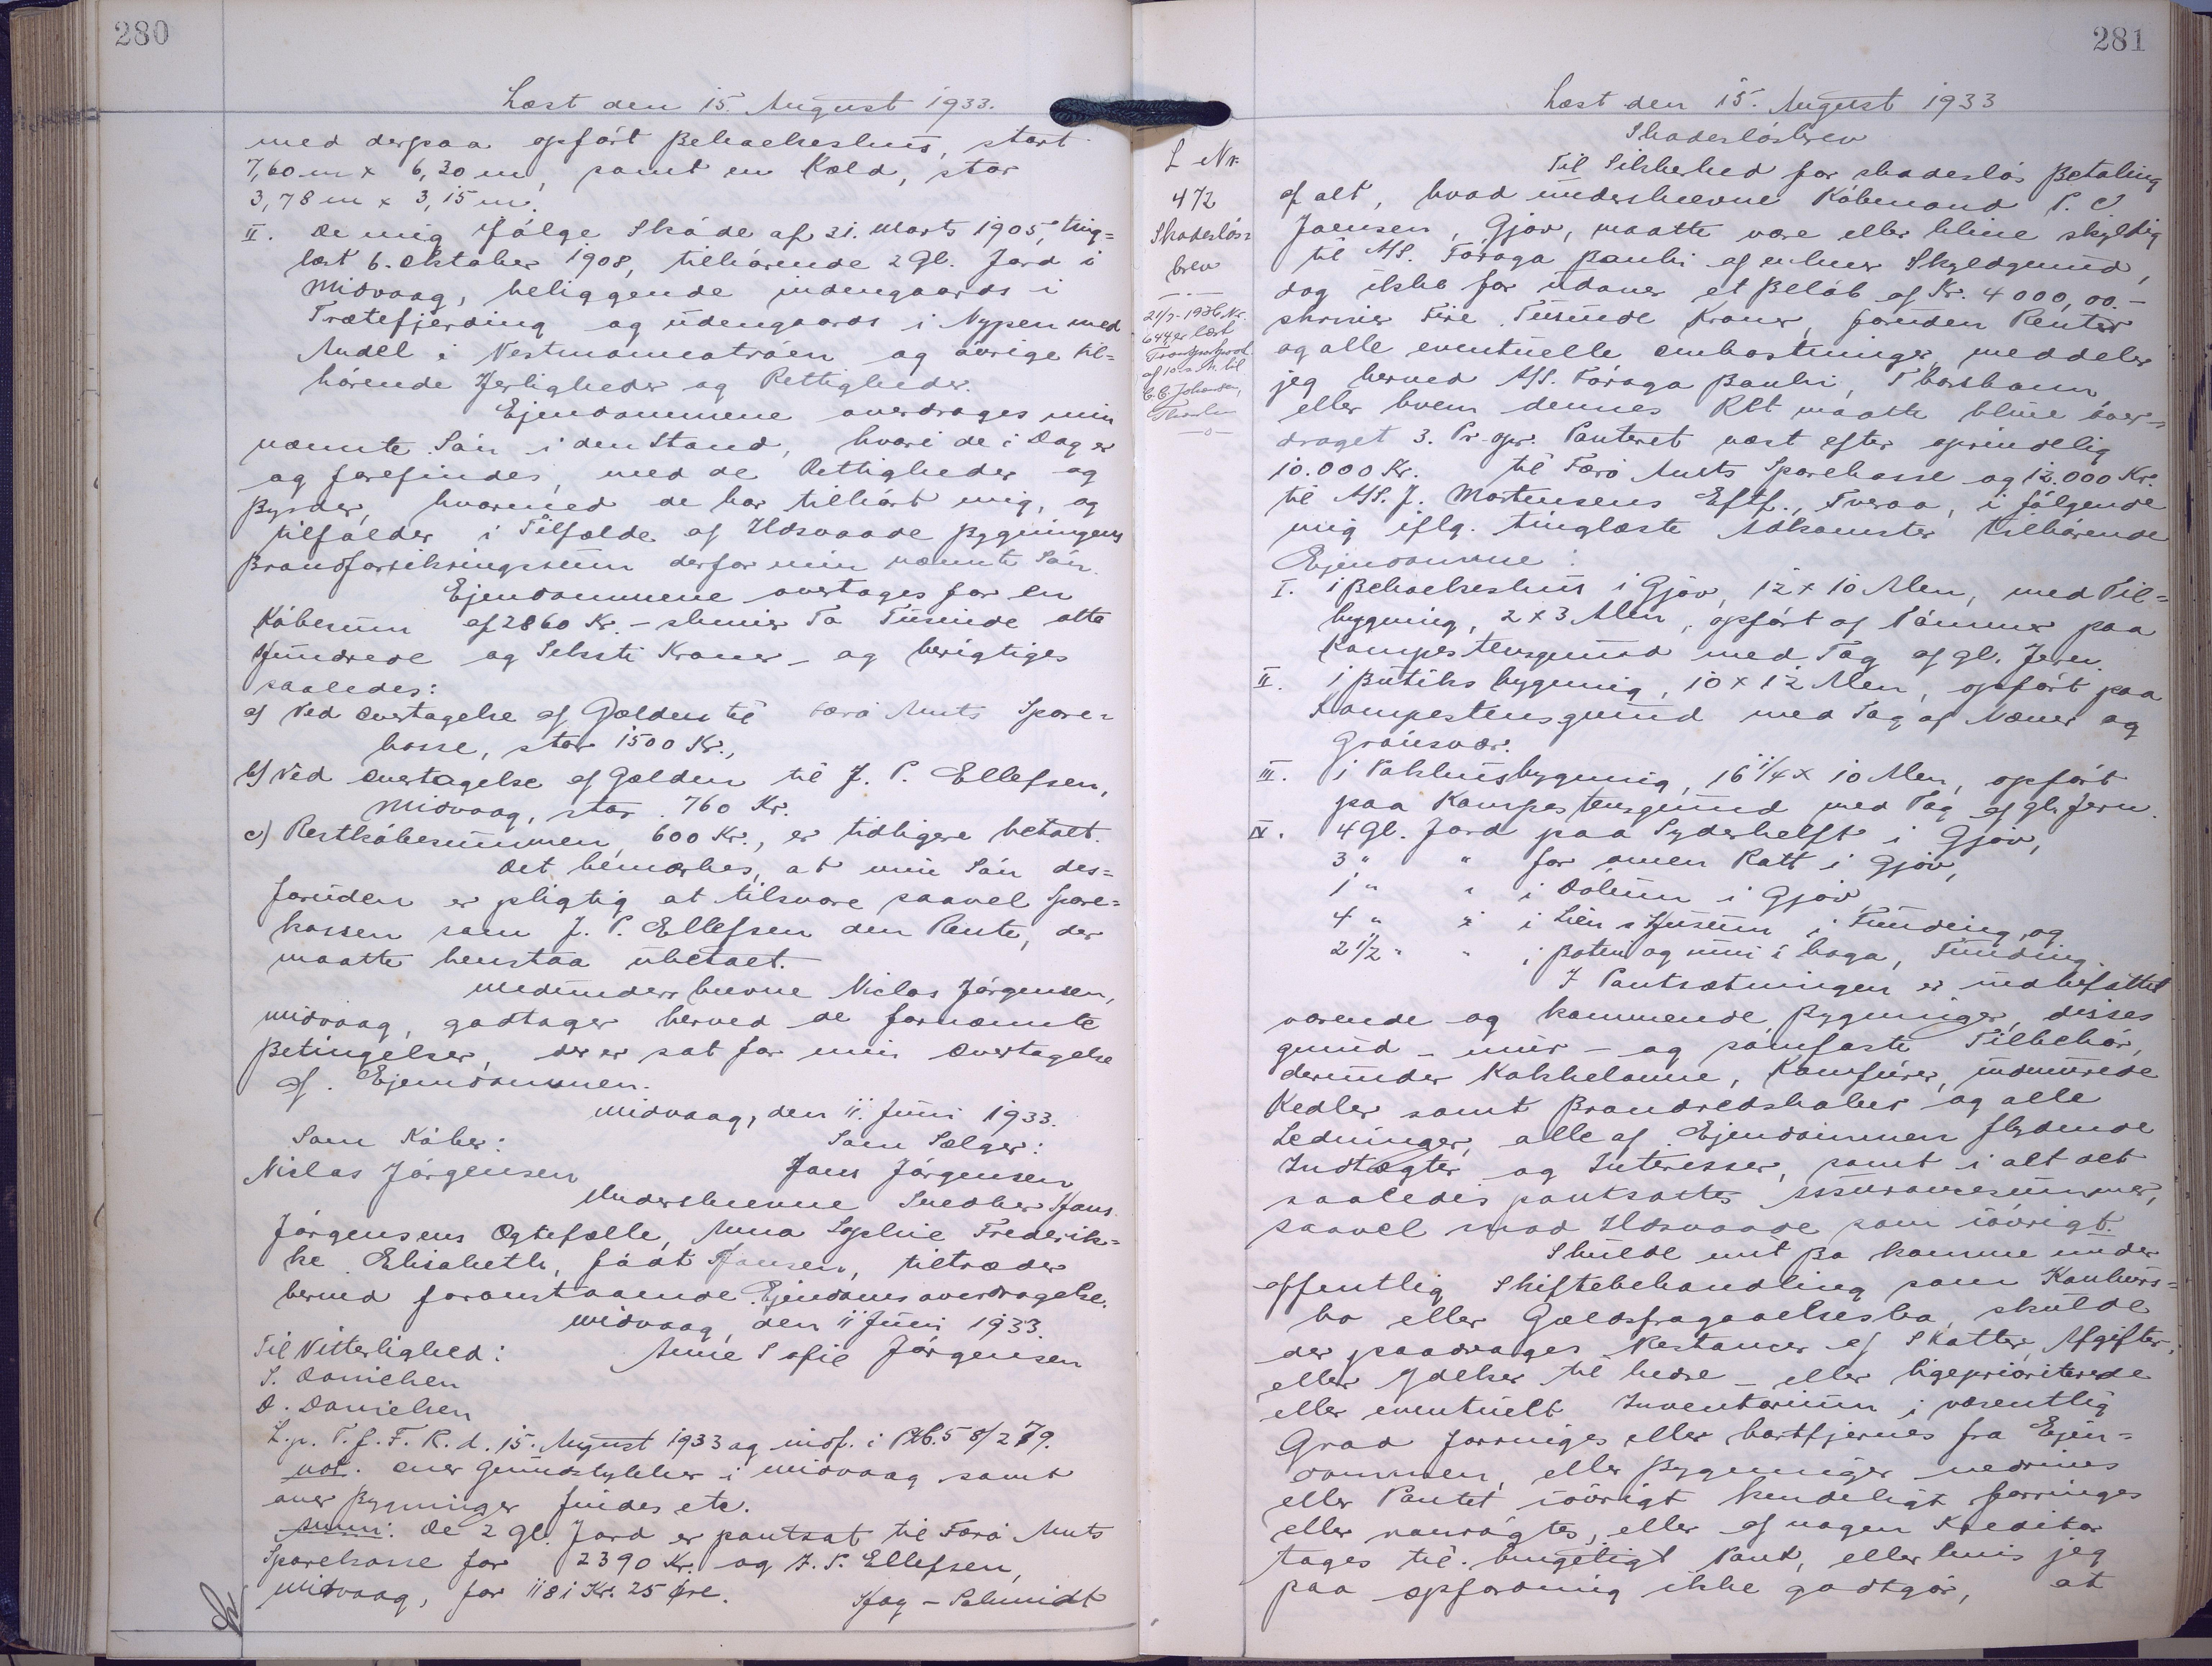 280
Læst den 15. August 1933.
med derpaa opført Beboelseshus, stort
7,60 m x 6,30 m, samt en Kold, stor
3,78 m x 3,15 m.
II. De mig ifølge Skøde af 21. Marts 1905, ting=
læst 6. Oktober 1908, tilhørende 2 Gl. Jord i
Midvaag, beliggende indengaards i
Trætefjerding og udengaards i Nypen med
Andel i Vestmannatrøen og øvrige til=
hørende Herligheder og Rettigheder.
Ejendommene overdrages min
nævnte Søn i den Stand, hvori de i Dag er
og forefindes, med de Rettigheder og
Byrder, hvormed de har tilhørt mig, og
tilfalder i Tilfælde af Ildsvaade Bygningens
Brandforsikringssum derfor min nævnte Søn.
Ejendommene overtages for en
Købesum af 2860 Kr. - skriver To Tusinde otte
Hundrede og Seksti Kroner - og berigtiges
saaledes:
a) Ved Overtagelse af Gælden til Færø Amts Spare=
kasse, stor 1500 Kr.,
b) Ved Overtagelse af Gælden til J. P. Ellefsen,
Midvaag, stor 760 Kr.
c) Restkøbesummen, 600 Kr., er tidligere betalt.
Det bemærkes, at min Søn des=
foruden er pligtig at tilsvare saavel Spare=
kassen som J. P. Ellefsen den Rente, der
maatte henstaa ubetalt.
Medunderskrevne Niclas Jørgensen,
Midvaag, godtager herved de fornævnte
Betingelser, der er sat for min Overtagelse
af Ejendommen.
Midvaag, den 11. Juni 1933.
Som Køber: Som Sælger:
Niclas Jørgensen Hans Jørgensen
Underskrevne Snedker Hans
Jørgensens Ægtefælle, Anna Sophie Frederik=
ke Elisabeth, født Hansen, tiltræder
herved foranstaaende Ejendomsoverdragelse.
Midvaag, den 11 Juni 1933.
Til Vitterlighed: Anne Sofie Jørgensen
S. Danielsen
D. Danielsen
L.p. T.f. F. R. d. 15. August 1933 og indf. i Ptb. 5 8/279.
not. over Grundstykker i Midvaag samt
over Bygninger findes etc.
Anm: De 2 gl. Jord er pantsat til Færø Amts
Sparekasse for 2390 Kr. og J. P. Ellefsen,
Midvaag, for 1181 Kr. 25 Øre. Høy-Schmidt
281
Læst den 15. August 1933
L Nr.
472
Skadesløs=
brev
21/7-1936 Nr.
644 er læst
Transport
til
Skadesløsbrev
Til Sikkerhed for skadesløs Betaling
af alt, hvad underskrevne Købmand P. J
Joensen, Gjov, maatte være eller blive skyldig
til A/S. Føroya Banki af enhver Skyldgrund,
dog ikke for udover et Beløb af Kr. 4000,00.-
skriver Fire Tusinde Kroner, foruden Renter
og alle eventuelle Omkostninger, meddeler
jeg herved A/S. Føroya Banki, Thorshavn,
eller hvem dennes Ret maatte blive over=
draget 3. Pr. opr. Panteret næst efter oprindelig
10.000 Kr. til Færø Amts Sparekasse og 12.000 Kr.
til A/S. J. Mortensens Eftf., Tveraa, i følgende
mig iflg. tinglæste Adkomster tilhørende
Ejendomme:
I. 1 Beboelseshus i Gjov, 12 x 10 Alen, med Til=
bygning, 2 x 3 Alen, opført af Tømmer paa
Kampestensgrund med Tag af gl. Jern.
II. 1 Butiksbygning, 10 x 12 Alen, opført paa
Kampestensgrund med Tag af Næver og
Grønsvær.
III. 1 Pakhusbygning, 16 1/4 x 10 Alen, opført
paa Kampestensgrund med Tag af glv Jern.
IV. 4 Gl. Jord paa Syderhelft i Gjov,
3 " " for omen Ratt i Gjov,
1 " " i Dølum i Gjov
4 " " i Lien i Husum i Funding, og
2 1/2 " " i Boten og inni i haga, Funding.
I Pantsætningen er indbefattet
værende og kommende Bygninger, disses
grund- mur- og sømfaste Tilbehør,
derunder Kakkelovne, Komfurer, indmurede
Kedler samt Brandredskaber og alle
Ledninger, alle af Ejendommen flydende
Indtægter og Interesser, samt i alt det
saaledes pantsattes Assurancesummer,
saavel mod Ildsvaade som iøvrigt.
Skulde mit Bo komme under
offentlig Skiftebehandling som Konkurs=
bo eller Gældsfragaaelsesbo, skulde
der paadrages Restancer af Skatter, Afgifter
eller Ydelser til bedre- eller ligeprioriterede
eller eventuelt Inventarium i væsentlig
Grad forringes eller bortfjernes fra Ejen=
dommen, eller Bygninger nedrives
eller Pantet iøvrigt kendeligt forringes
eller vanrøgtes, eller af nogen Kreditor
tages til brugeligt Pant, eller hvis jeg
paa Opfordring ikke godtgør, at